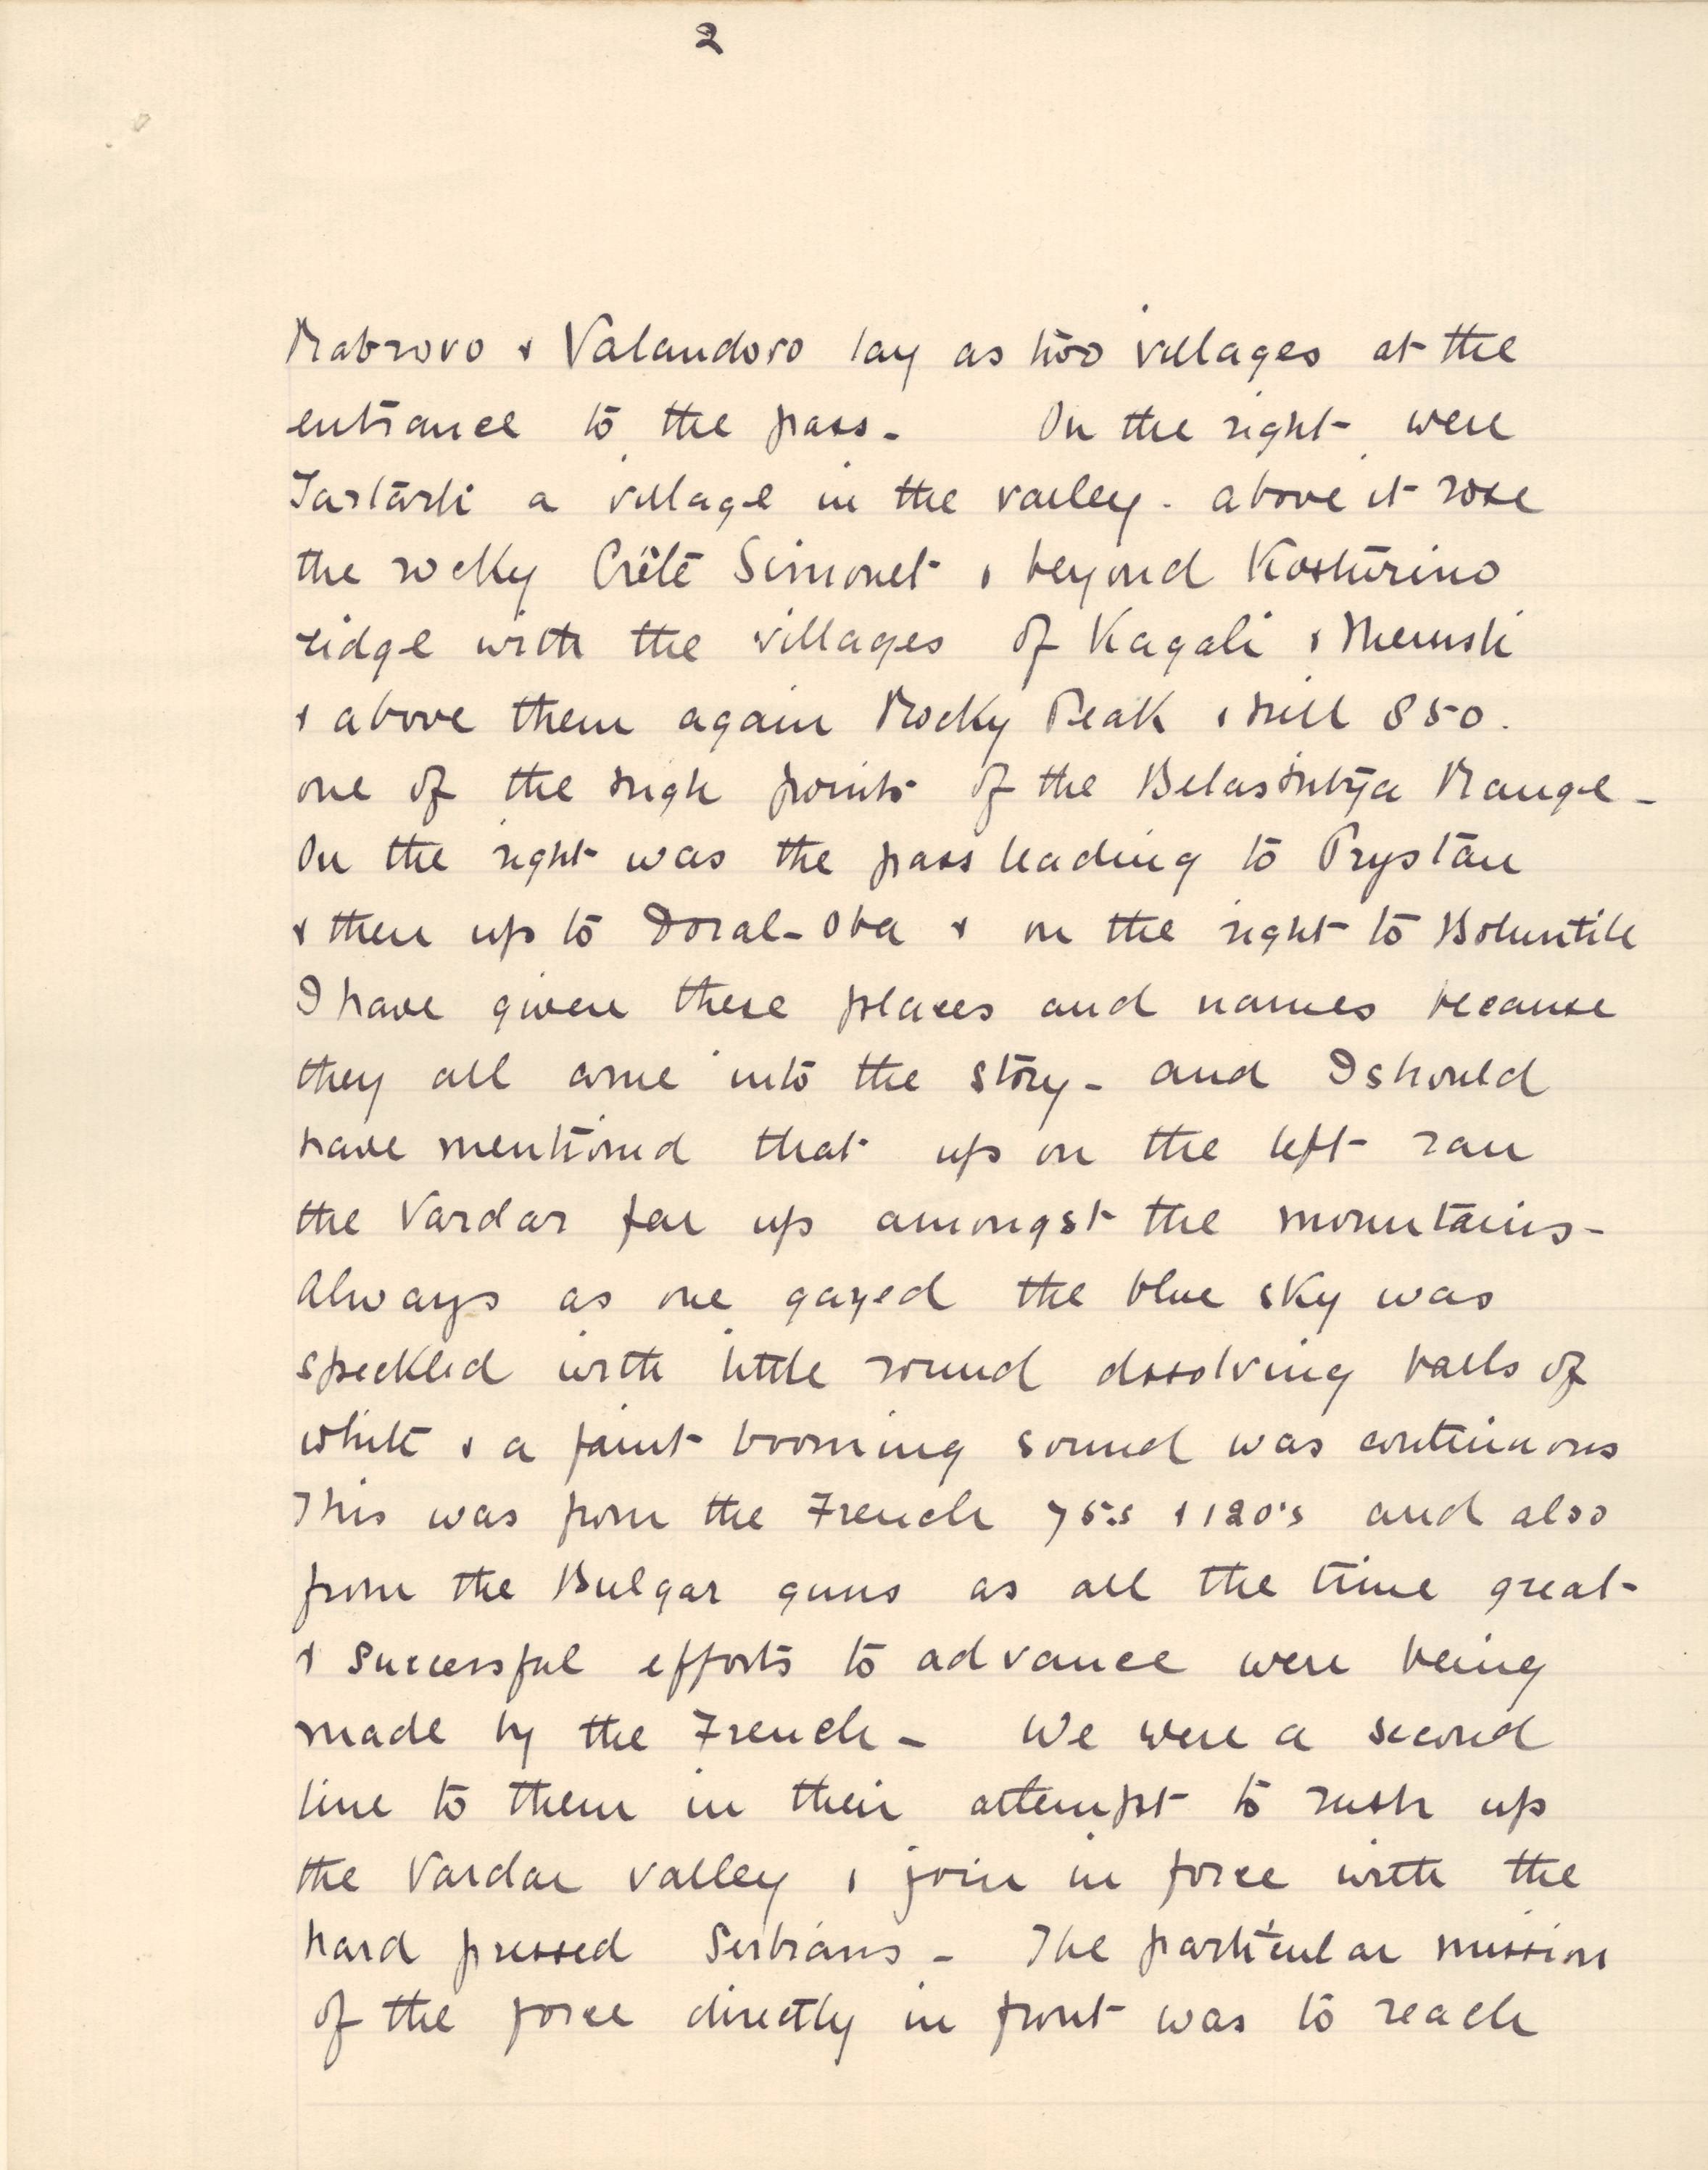 2
Rabrovo & Valandovo lay as two villages at the
entrance to the pass - On the right were
Tartárli a village in the valley. above it rose
the rocky Crête Simonet & beyond Kosturino
ridge with the villages of Kagali & Memisli
& above them again Rocky Peak & Hill 850.
one of the high points of the Range -
On the right was the pass leading to Prystan
& then up to Doral-Oba & on the right to
I have given these places and names because
they all come into the story - and I should
have mentioned that up on the left ran
the Vardar far up amongst the mountains -
Always as one gazed the blue sky was
speckled with little round dissolving balls of
white & a faint booming sound was continuous
This was from the French 75s & 120's and also
from the Bulgar guns as all the time great
& successful efforts to advance were being
made by the French - We were a second
line to them in their attempt to rush up
the Vardar valley & join in force with the
hard pressed Serbians - The particular mission
of the force directly in front was to reach